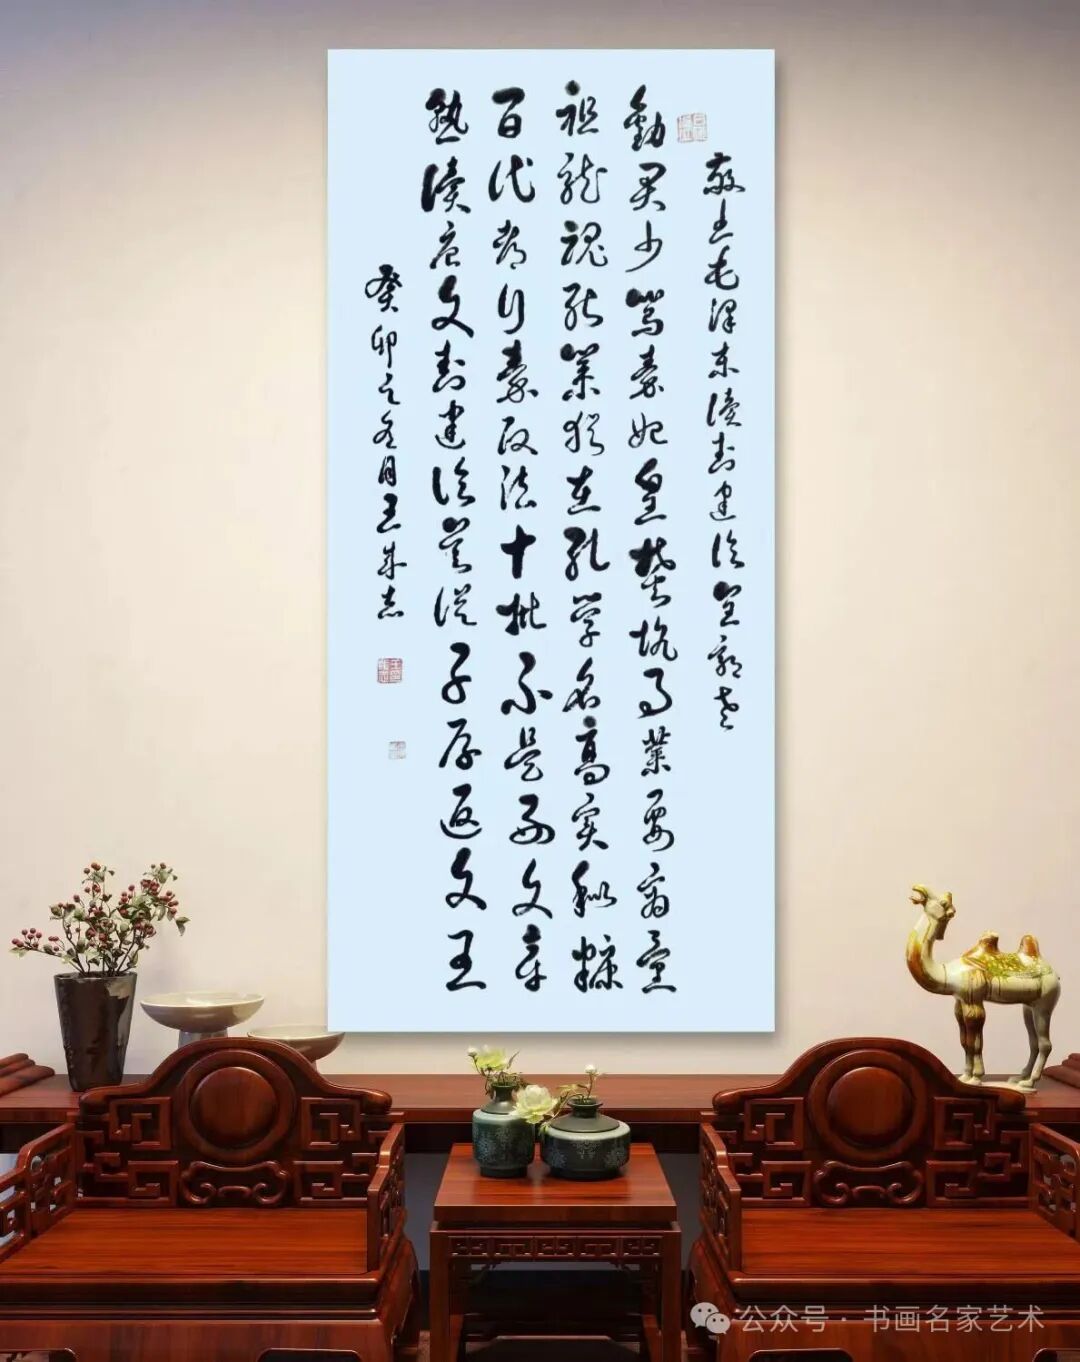 敬书毛泽东读封建论呈郭老
勸君少骂秦始皇焚坑事業要商量
祖龙魂死業犹在孔学名高实秕糠
百代都行秦政法十批不是好文章
熟读唐文封建论莫从子厚返文王
癸卯之冬月王成志
公众号 · 书画名家艺术